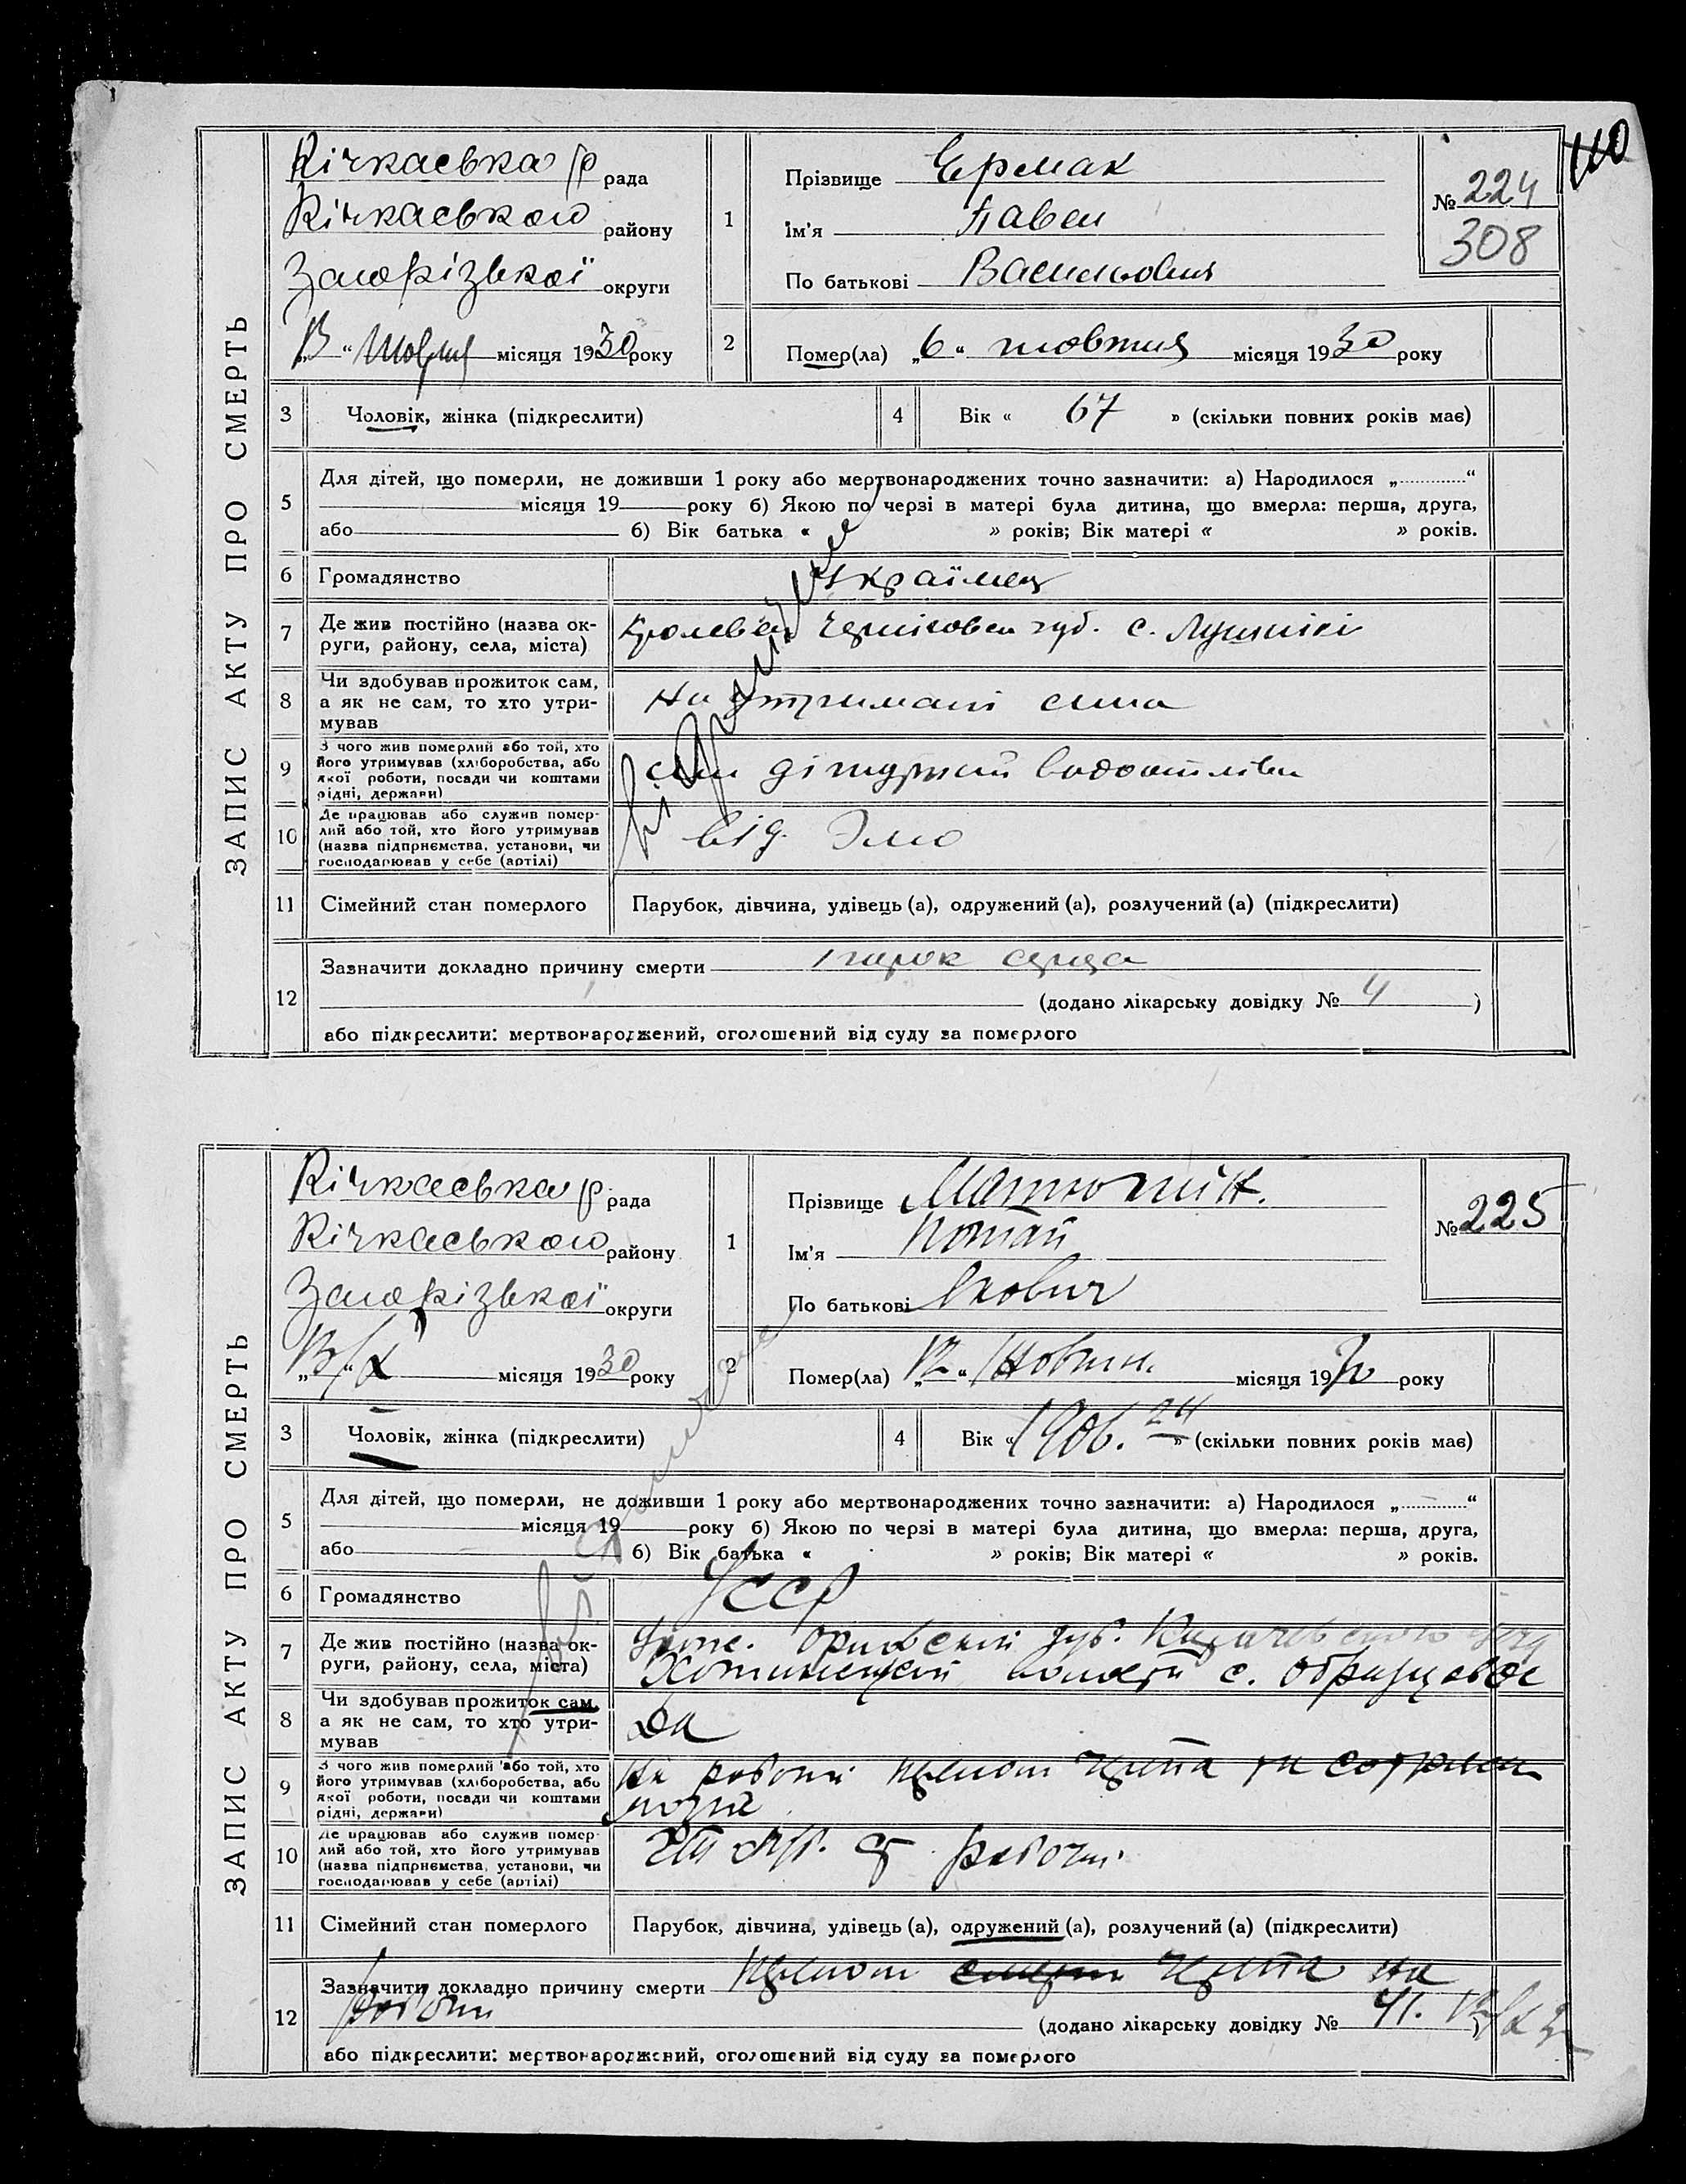 110
ЗАПИС АКТУ ПРО СМЕРТЬ
Кічкаська р рада
Кічкаського району
Запорізької округи
„13“ Жовтня місяця 1930 року
1
Прізвище Ермак
Ім'я Павел
По батькові Васильович
№ 224
308
2
Помер(ла) „6“ жовтня місяця 1930 року
3 Чоловік, жінка (підкреслити)
4 Вік « 67 » (скільки повних років має)
5 Для дітей, що померли, не доживши 1 року або мертвонароджених точно зазначити: а) Народилося „ “
місяця 19 року б) Якою по черзі в матері була дитина, що вмерла: перша, друга,
або б) Вік батька « » років; Вік матері « » років.
6 Громадянство Українец
7 Де жив постійно (назва ок-
руги, району, села, міста) губ. с.
8 Чи здобував прожиток сам,
а як не сам, то хто утри-
мував
На утримані сина
9 З чого жив померлий або той, хто
його утримував (хліборобства, або
якої роботи, посади чи коштами
рідні, держави)
син
10 Де працював або служив помер-
лий або той, хто його утримував
(назва підприємства, установи, чи
господарював у себе (артілі)
від.
11 Сімейний стан померлого Парубок, дівчина, удівець (а), одружений (а), розлучений (а) (підкреслити)
12 Зазначити докладно причину смерти порок серця
(додано лікарську довідку № 4 )
або підкреслити: мертвонароджений, оголошений від суду за померлого
ЗАПИС АКТУ ПРО СМЕРТЬ
Кічкаська р. рада
Кічкаського району
Запорізької округи
„13/X“ місяця 1930 року
1
Прізвище
Ім'я
По батькові
№ 225
2
Помер(ла) „12“ Жовтн. місяця 1930 року
3 Чоловік, жінка (підкреслити)
4 Вік « 1906. 24 » (скільки повних років має)
5 Для дітей, що померли, не доживши 1 року або мертвонароджених точно зазначити: а) Народилося „ “
місяця 19 року б) Якою по черзі в матері була дитина, що вмерла: перша, друга,
або б) Вік батька « » років; Вік матері « » років.
6 Громадянство УССР
7 Де жив постійно (назва ок-
руги, району, села, міста)
губ.
с.
8 Чи здобував прожиток сам,
а як не сам, то хто утри-
мував
Да
9 З чого жив померлий або той, хто
його утримував (хліборобства, або
якої роботи, посади чи коштами
рідні, держави)
10 Де працював або служив помер-
лий або той, хто його утримував
(назва підприємства, установи, чи
господарював у себе (артілі)
11 Сімейний стан померлого Парубок, дівчина, удівець (а), одружений (а), розлучений (а) (підкреслити)
12 Зазначити докладно причину смерти на
роботі
(додано лікарську довідку № 41. )
або підкреслити: мертвонароджений, оголошений від суду за померлого